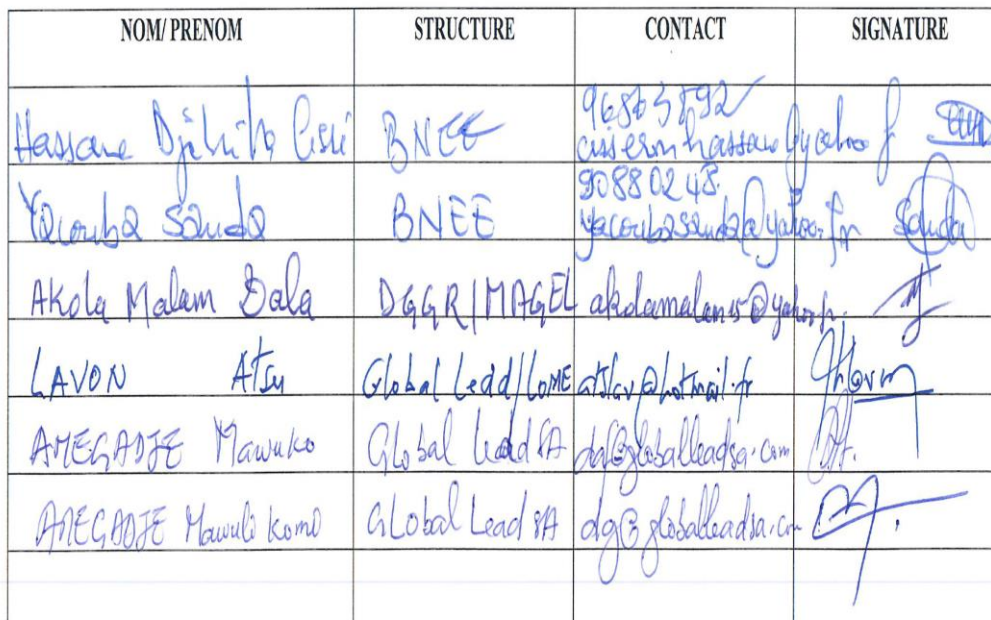 NOM/ PRENOM STRUCTURE CONTACT SIGNATURE
96863892
Hassane Djibrilla Cissé BNEE cisseromhassane@yahoo.f
90880248.
Yacouba Sanda BNEE yacoubasanda@yahoo.fr Sanda
Akola Malam Dala DGGR/MAGEL akolamalam15@yahoo.fr.
LAVON Atsu Global Lead/LOME atslav@hotmail.fr
AMEGADJE Mawuko Global Lead SA daf@globalleadsa.com
AMEGADJE Mawuli Komi Global Lead SA dg@globalleadsa.com